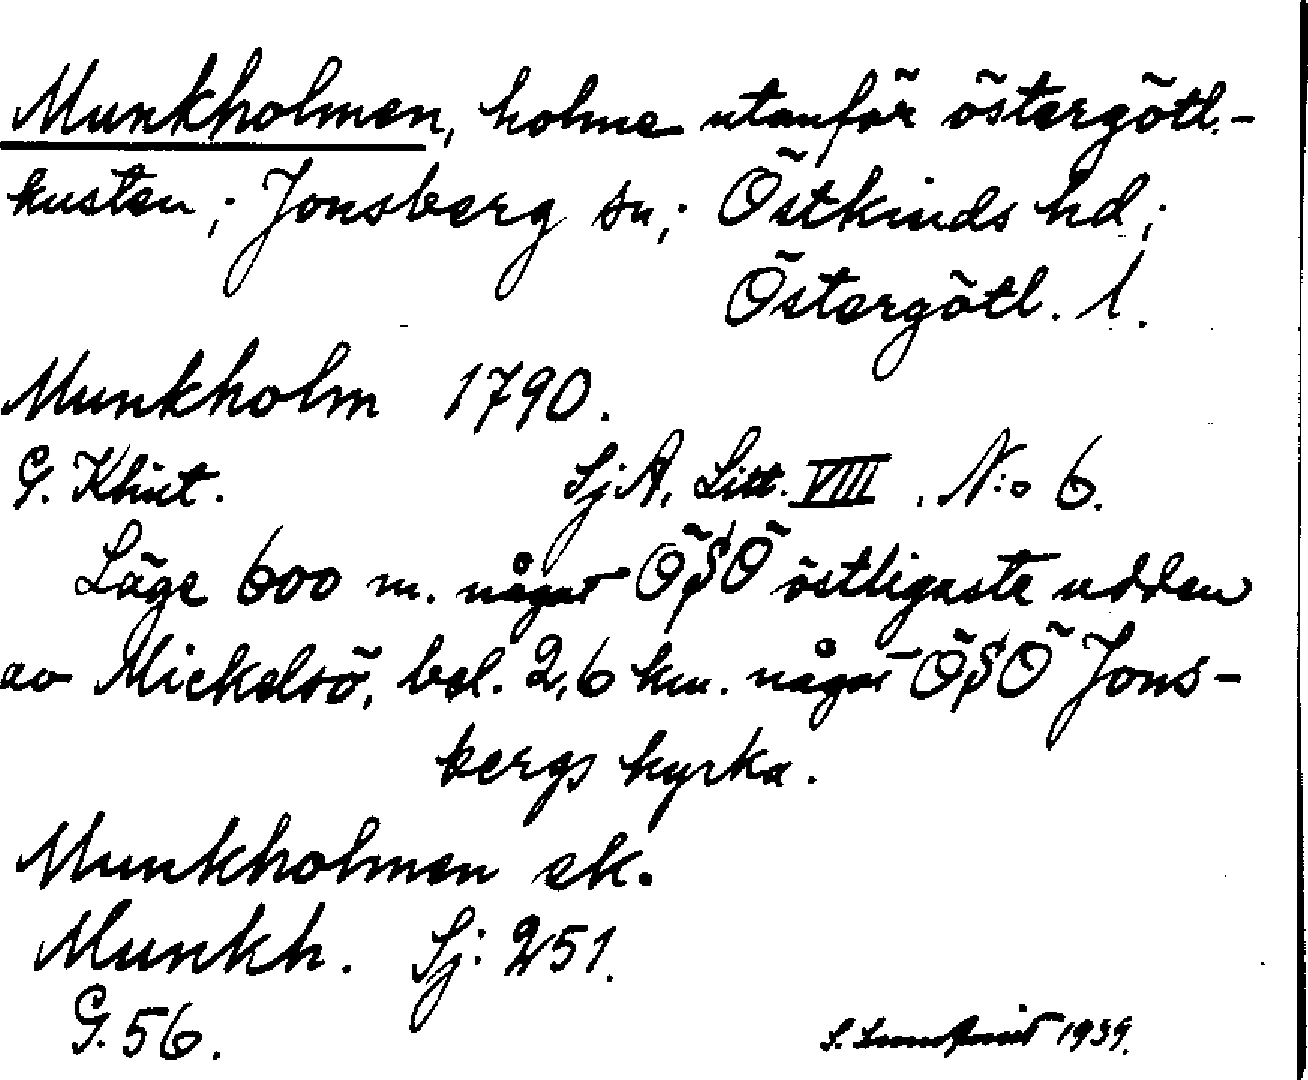 Munkholmen, holme utanför östergötl.-
kusten; Jonsberg sn; Östkinds hd;
Östergötl. l.
Munkholm 1790.
G. Klint. SjA, Litt. VIII. N:o 6.
Läge 600 m. något ÖSÖ östligaste udden
av Mickelsö, bel. 2,6 km. något ÖSÖ Jons-
bergs kyrka.
Munkholmen ek.
Munkh. Sj: 251.
G. 56. S. Lundqvist 1939.